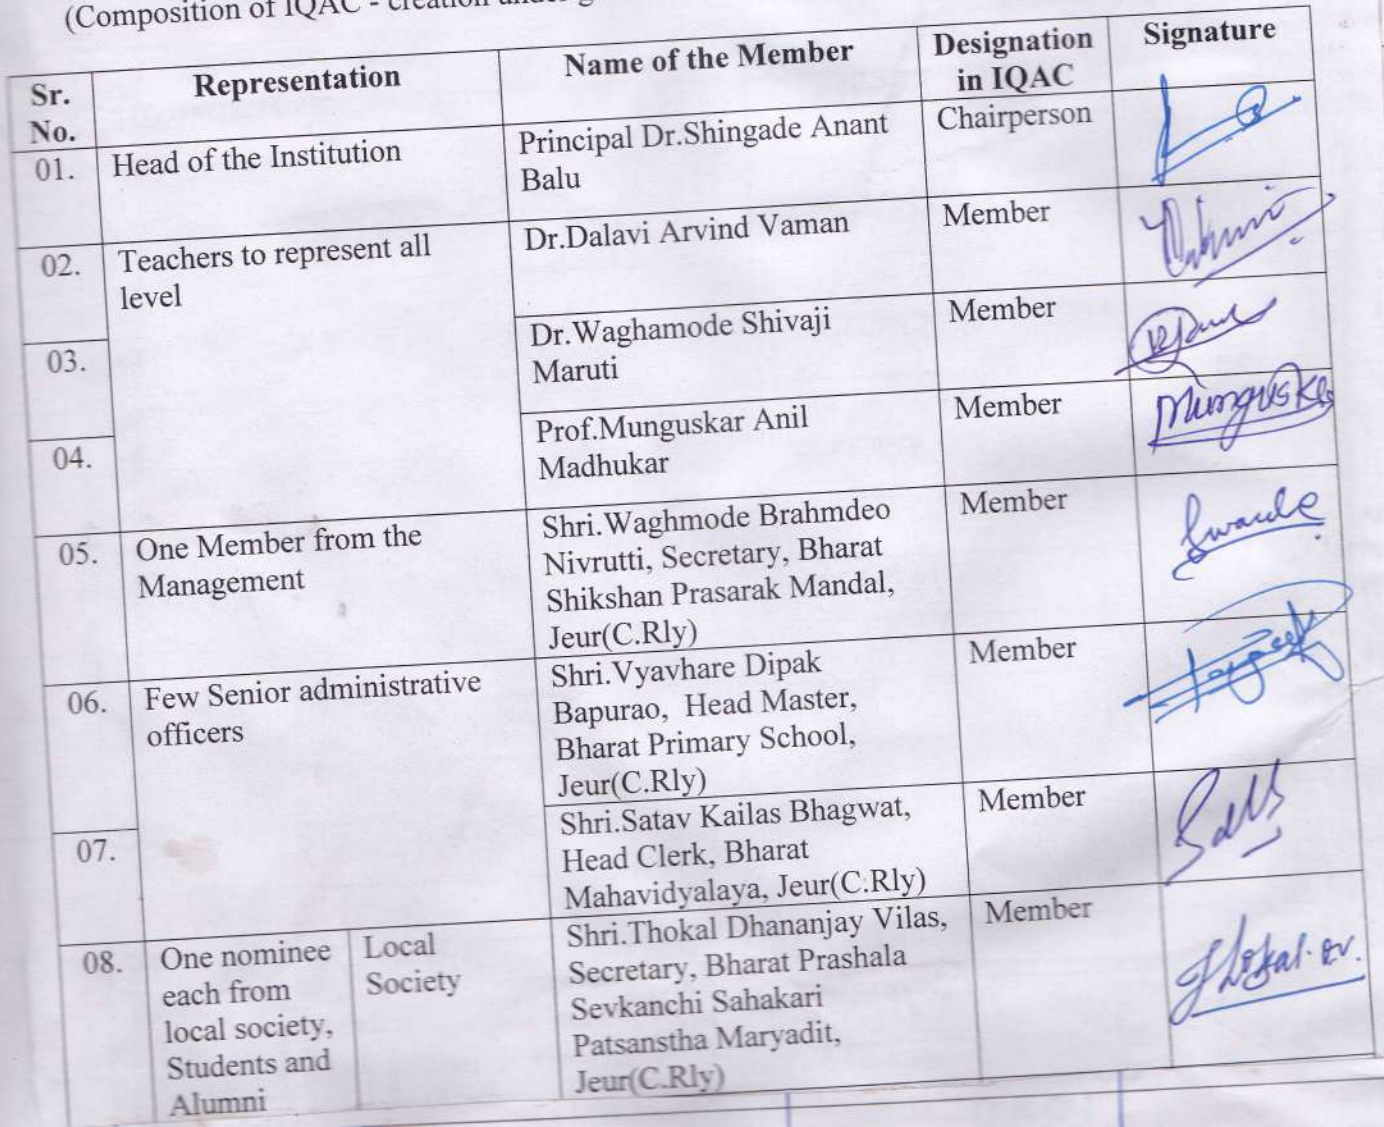 (Composition of IQAC - creation under
Sr. No. Representation Name of the Member Designation in IQAC Signature
01. Head of the Institution Principal Dr.Shingade Anant Balu Chairperson
02. Teachers to represent all level Dr.Dalavi Arvind Vaman Member
03. Dr.Waghamode Shivaji Maruti Member
04. Prof.Munguskar Anil Madhukar Member
05. One Member from the Management Shri.Waghmode Brahmdeo Nivrutti, Secretary, Bharat Shikshan Prasarak Mandal, Jeur(C.Rly) Member
06. Few Senior administrative officers Shri.Vyavhare Dipak Bapurao, Head Master, Bharat Primary School, Jeur(C.Rly) Member
07. Shri.Satav Kailas Bhagwat, Head Clerk, Bharat Mahavidyalaya, Jeur(C.Rly) Member
08. One nominee each from local society, Students and Alumni Local Society Shri.Thokal Dhananjay Vilas, Secretary, Bharat Prashala Sevkanchi Sahakari Patsanstha Maryadit, Jeur(C.Rly) Member